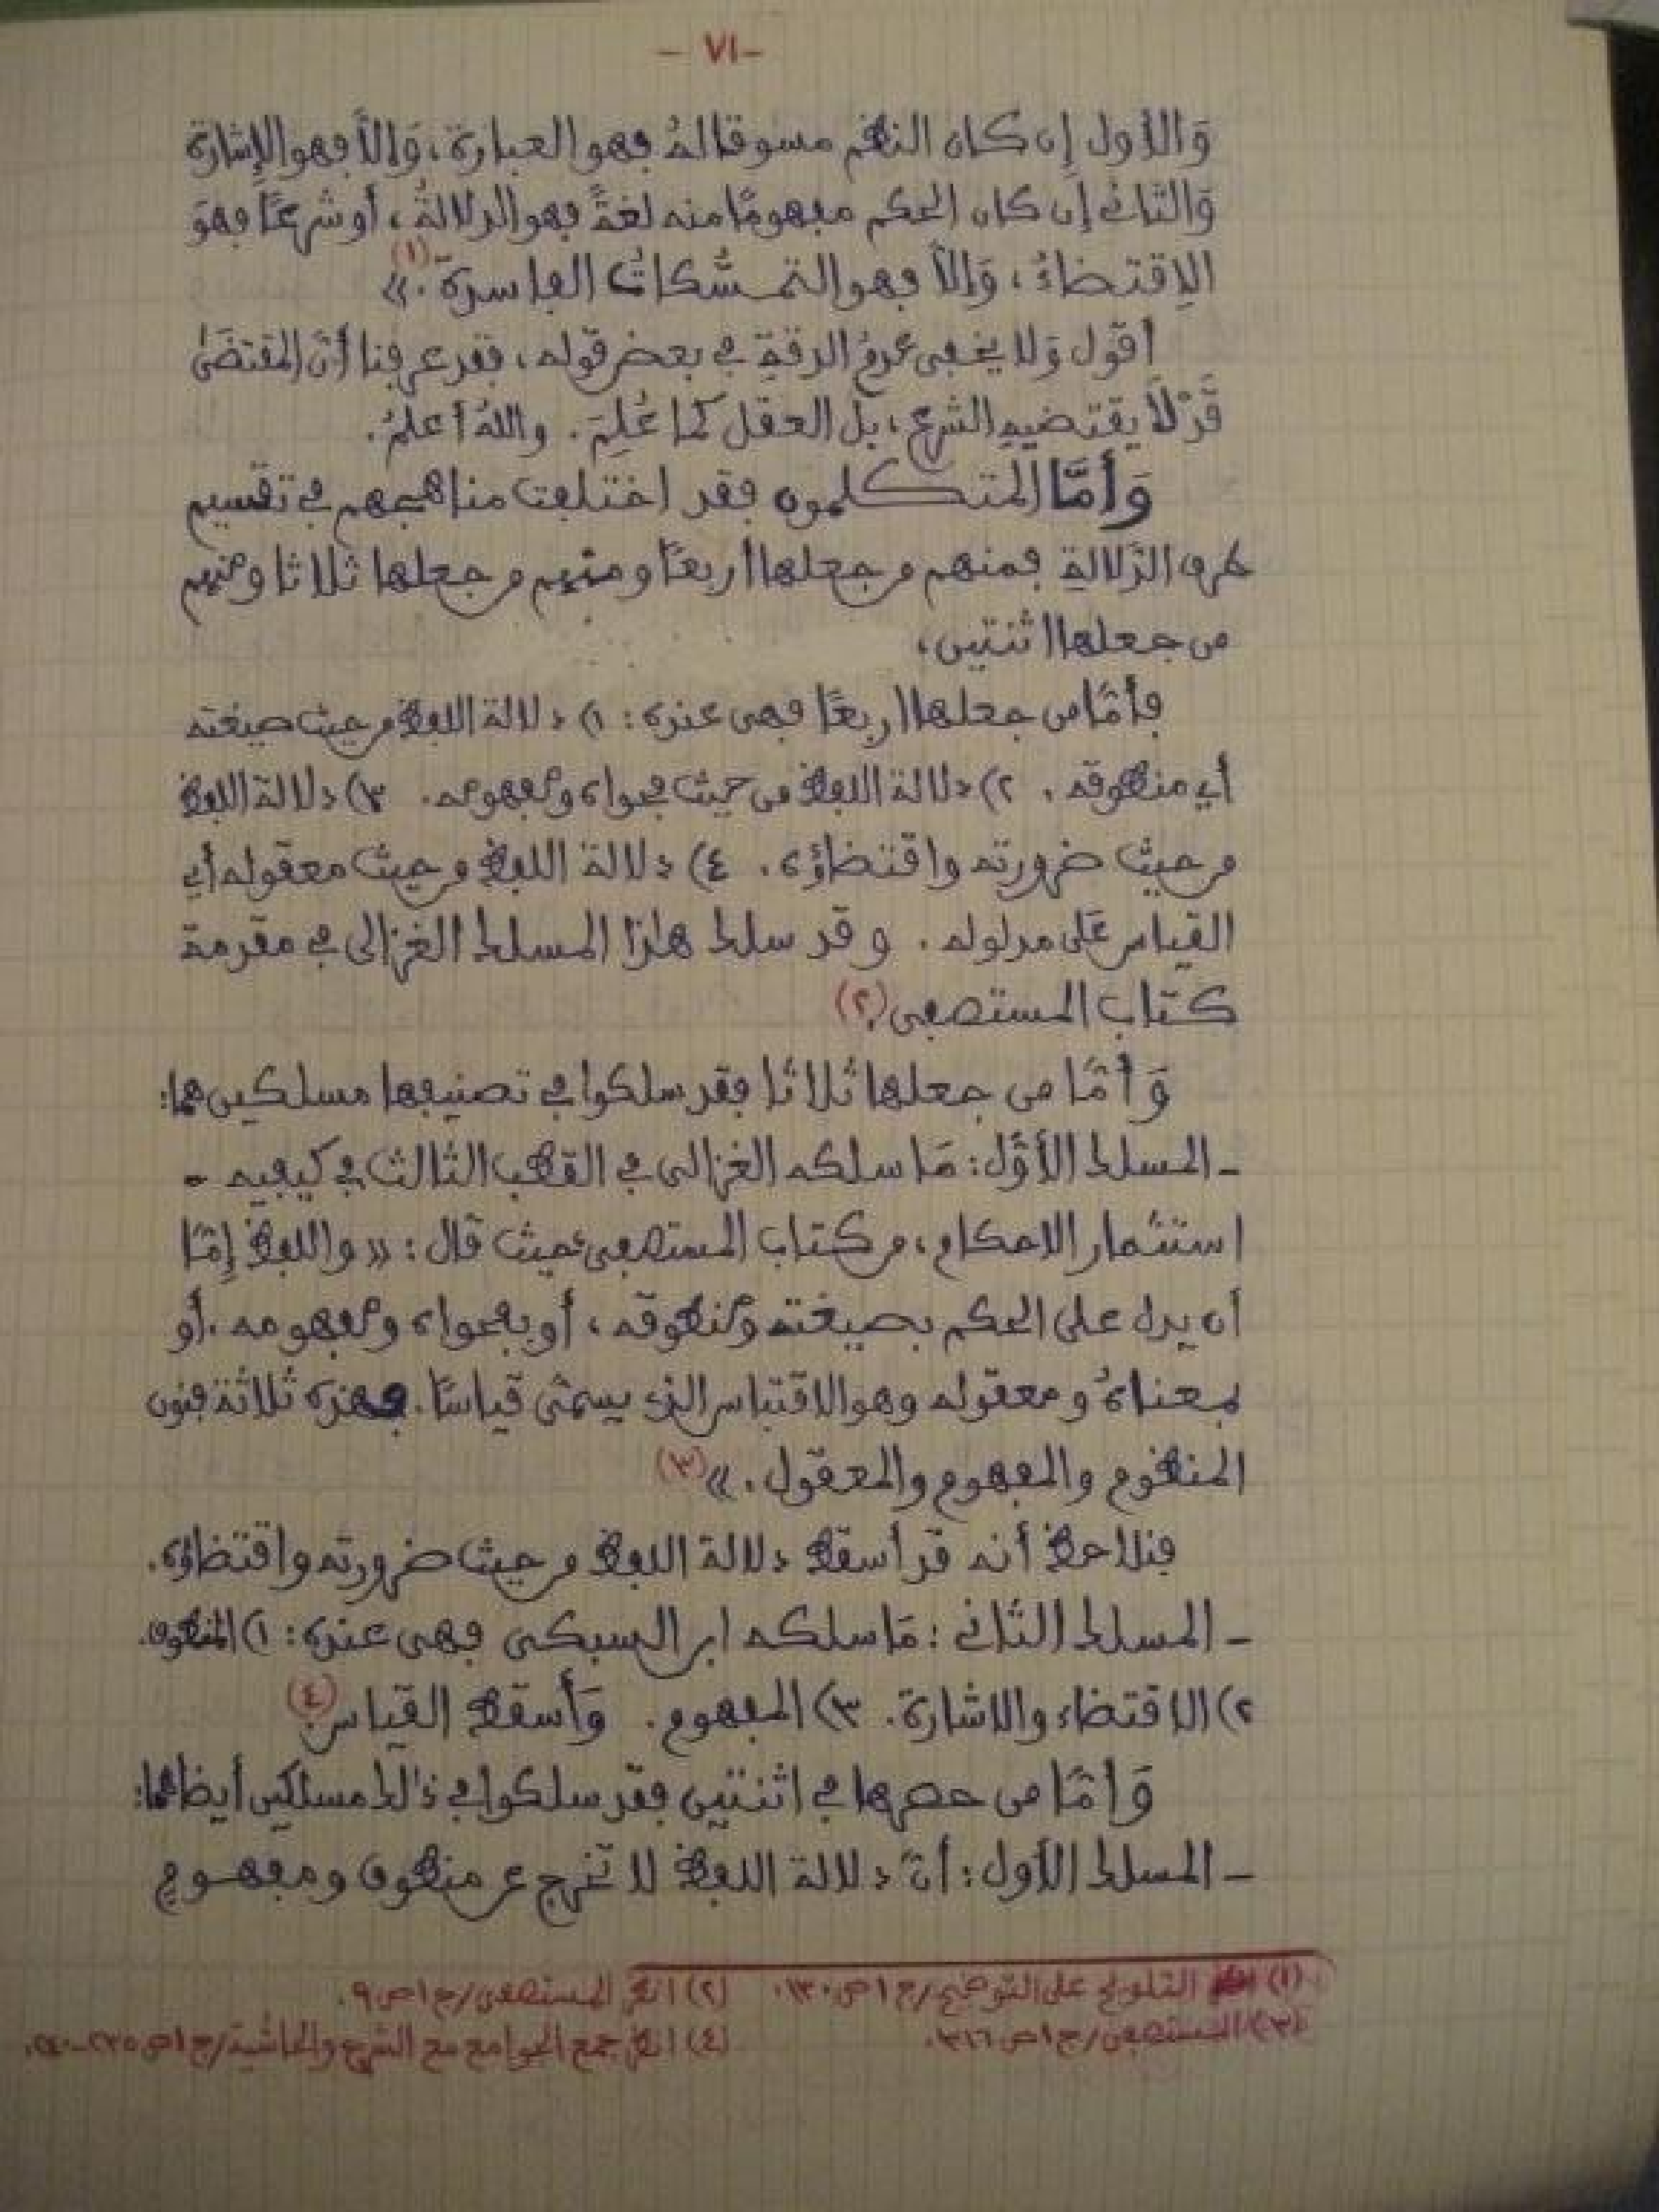 - ٧١ -
وَالأول إن كان النظم مسوقا لهُ فهو العبارة، وَإلاَّ فهو الإشارة
وَالثاني إن كان الحكم مفهومًا منه لغةً فهو الدلالةُ، أو شرعًا فهوَ
الاِقتضاءُ، وَإلاَّ فهو التمسُّكاتُ الفاسدة.» (١)
أقول وَلا يخفى عدمُ الدقةِ في بعض قوله، فقد عرفنا أنّ المقتضَى
قَدْ لاَ يقتضيهِ الشرع، بل العقل كما عُلِمَ. واللهُ أعلمُ.
وَأمَّا المتكلمون فقد اختلفت مناهجهم في تقسيم
طرق الدَّلالة فمنهم من جعلها أربعًا ومنهم من جعلها ثلاثا ومنهم
من جعلها اثنتين،
فأمَّا من جعلها أربعًا فهي عنده: ١) دلالة اللفظ من حيث صيغته
أي منطوقه. ٢) دلالة اللفظ من حيث فحواه ومفهومه. ٣) دلالة اللفظ
من حيث ضرورته واقتضاؤه. ٤) دلالة اللفظ من حيث معقوله أي
القياس عَلى مدلوله. وقد سلك هاذا المسلك الغزالى في مقدمة
كتاب المستصفى (٢).
وَأمَّا من جعلها ثلاثا فقد سلكوا في تصنيفها مسلكين هما:
- المسلك الأوَّل: مَا سلكه الغزالى في القطب الثالث في كيفيه -
استثمار الاحكام، من كتاب المستصفى حيث قال: «واللفظ إمَّا
أن يدل على الحكم بصيغته ومنطوقه، أو بفحواه ومفهومه. أو
بمعناهُ ومعقوله وهو الاقتباس الذي يسمَّى قياسًا. فهذه ثلاثة فنون
المنظوم والمفهوم والمعقول.» (٣)
فنلاحظ أنه قد أسقط دلالة اللفظ من حيث ضرورته واقتضاؤه.
- المسلك الثاني: مَا سلكه ابن السبكى فهى عنده: ١) المنطوق.
٢) الاقتضاء والاشارة. ٣) المفهوم. وَأسقط القياس (٤).
وَأمَّا من حصرها في اثنتين فقد سلكوا في ذالك مسلكين أيضا هما:
- المسلك الأول: أنّ دلالة اللفظ لا تخرج عن منطوق ومفهوم
(١) التلويح على التوضيح/ج١ص١٣٠. (٢) انظر المستصفى/ج١ص٩.
(٣) المستصفى/ج١ص٣١٦. (٤) انظر جمع الجوامع مع الشرح والحاشية/ج١ص٢٣٥-٢٤٠.